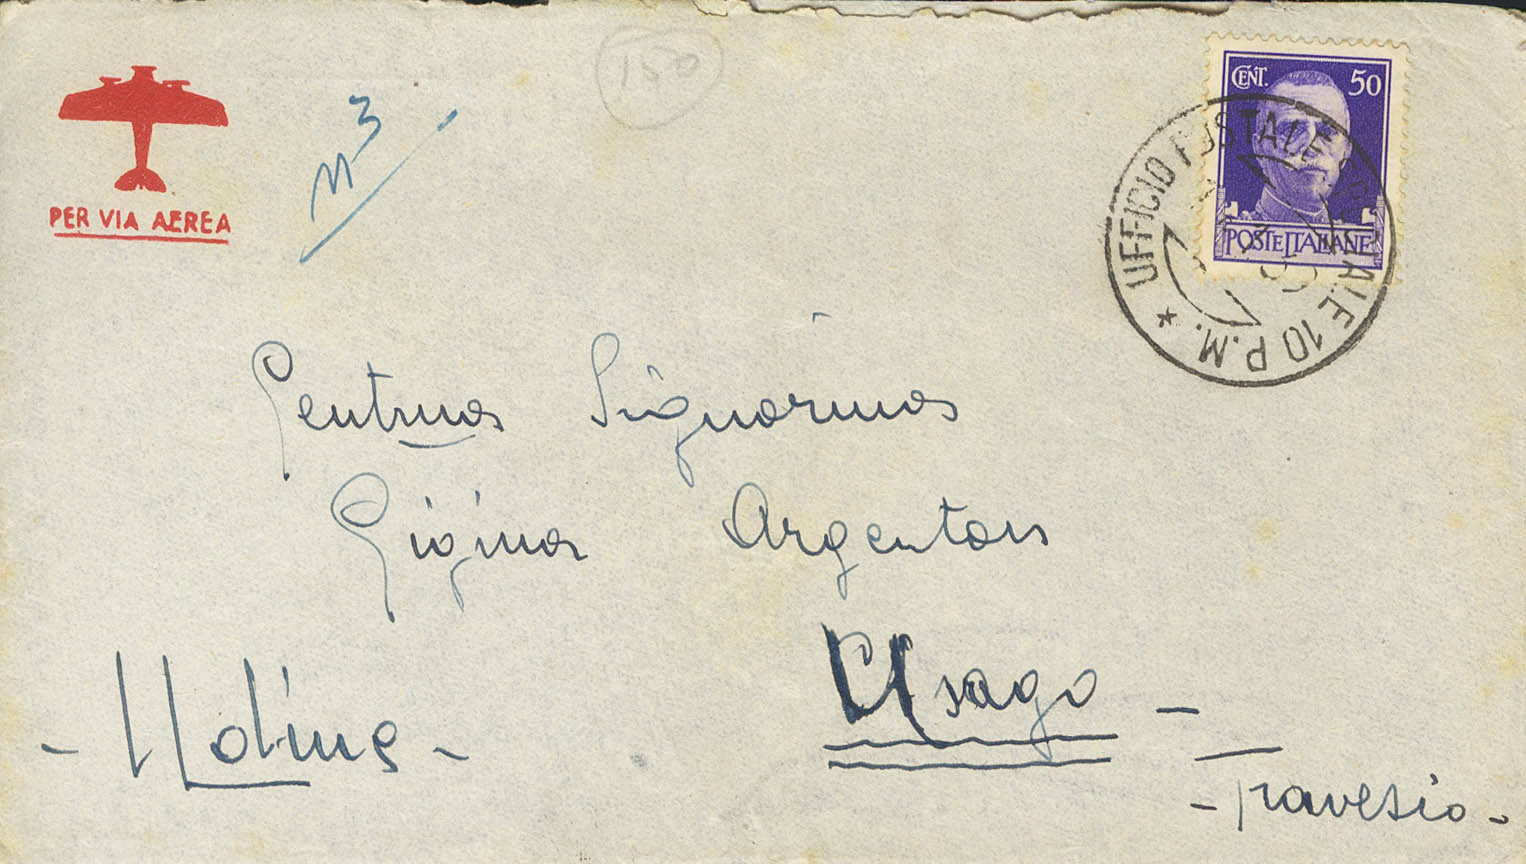 PER VIA AEREA
n 3
150
CENT. 50
POSTE ITALIANE
UFFICIO POSTALE SPECIALE 10 P.M. *
Gentma Signorina
Gigina Argenton
Usago -
- Udine -
- Travesio -